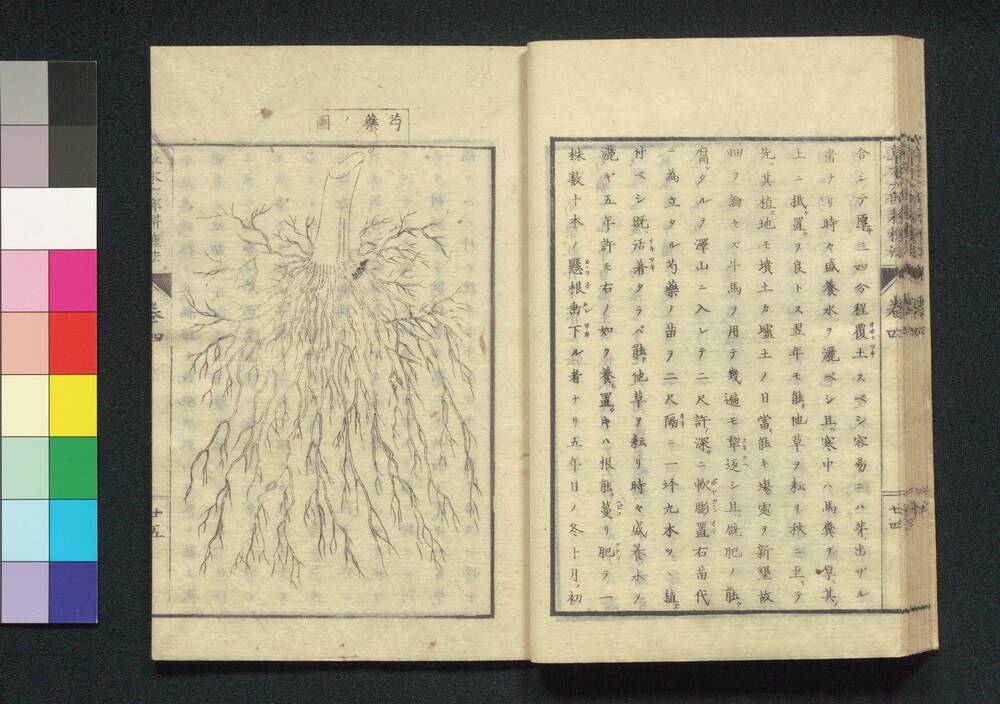 合シテ厚三四分程覆土スベシ容易ニハ芽出ザル
者ナリ時々盛養水ヲ灑ベシ且寒中ハ馬糞ヲ厚其
上ニ抵置ヲ良トス翌年モ能他草ヲ耘リ秋ニ至リテ
先其植地モ墳土カ壚土ノ日當能キ塲處ヲ新墾故
畑ヲ論セズ牛馬ヲ用テ幾遍モ犂返シ且厩肥ノ能
腐タルヲ澤山ニ入レテ二尺許深ニ軟膨置右苗代
ニ為立タル芍藥ノ苗ヲ二尺隔ニ一坪九本ツヽ植
付ベシ既活着タラバ能他草ヲ耘リ時々盛養水ヲ
澆ギ五年許モ右ノ如ク養置トキハ根能蔓リ肥テ一
株数十本ノ懸根垂下ル者ナリ五年目ノ冬十月初
卷四
芍藥ノ圖
卷四
廿五